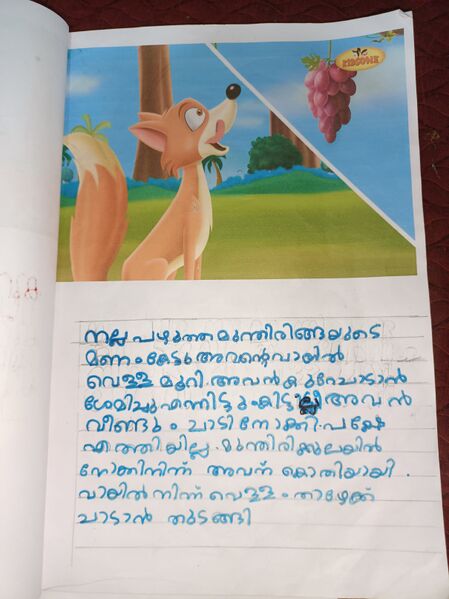 KIDSONE
നല്ല പഴുത്ത മുന്തിരിങ്ങയുടെ
മണം കേട്ടു അവന്റെ വായിൽ
വെള്ള മൂറി. അവൻ കുറേ ചാടാൻ
ശ്രേമിച്ചു എന്നിട്ടും കിട്ടു അവൻ
വീണ്ടും ചാടി നോക്കി. പക്ഷേ
എത്തിയില്ല. മുന്തിരിക്കുലയിൽ
നോക്കിനിന്ന് അവന് കൊതിയായി.
വായിൽ നിന്ന് വെള്ളം താഴേക്ക്
ചാടാൻ തുടങ്ങി